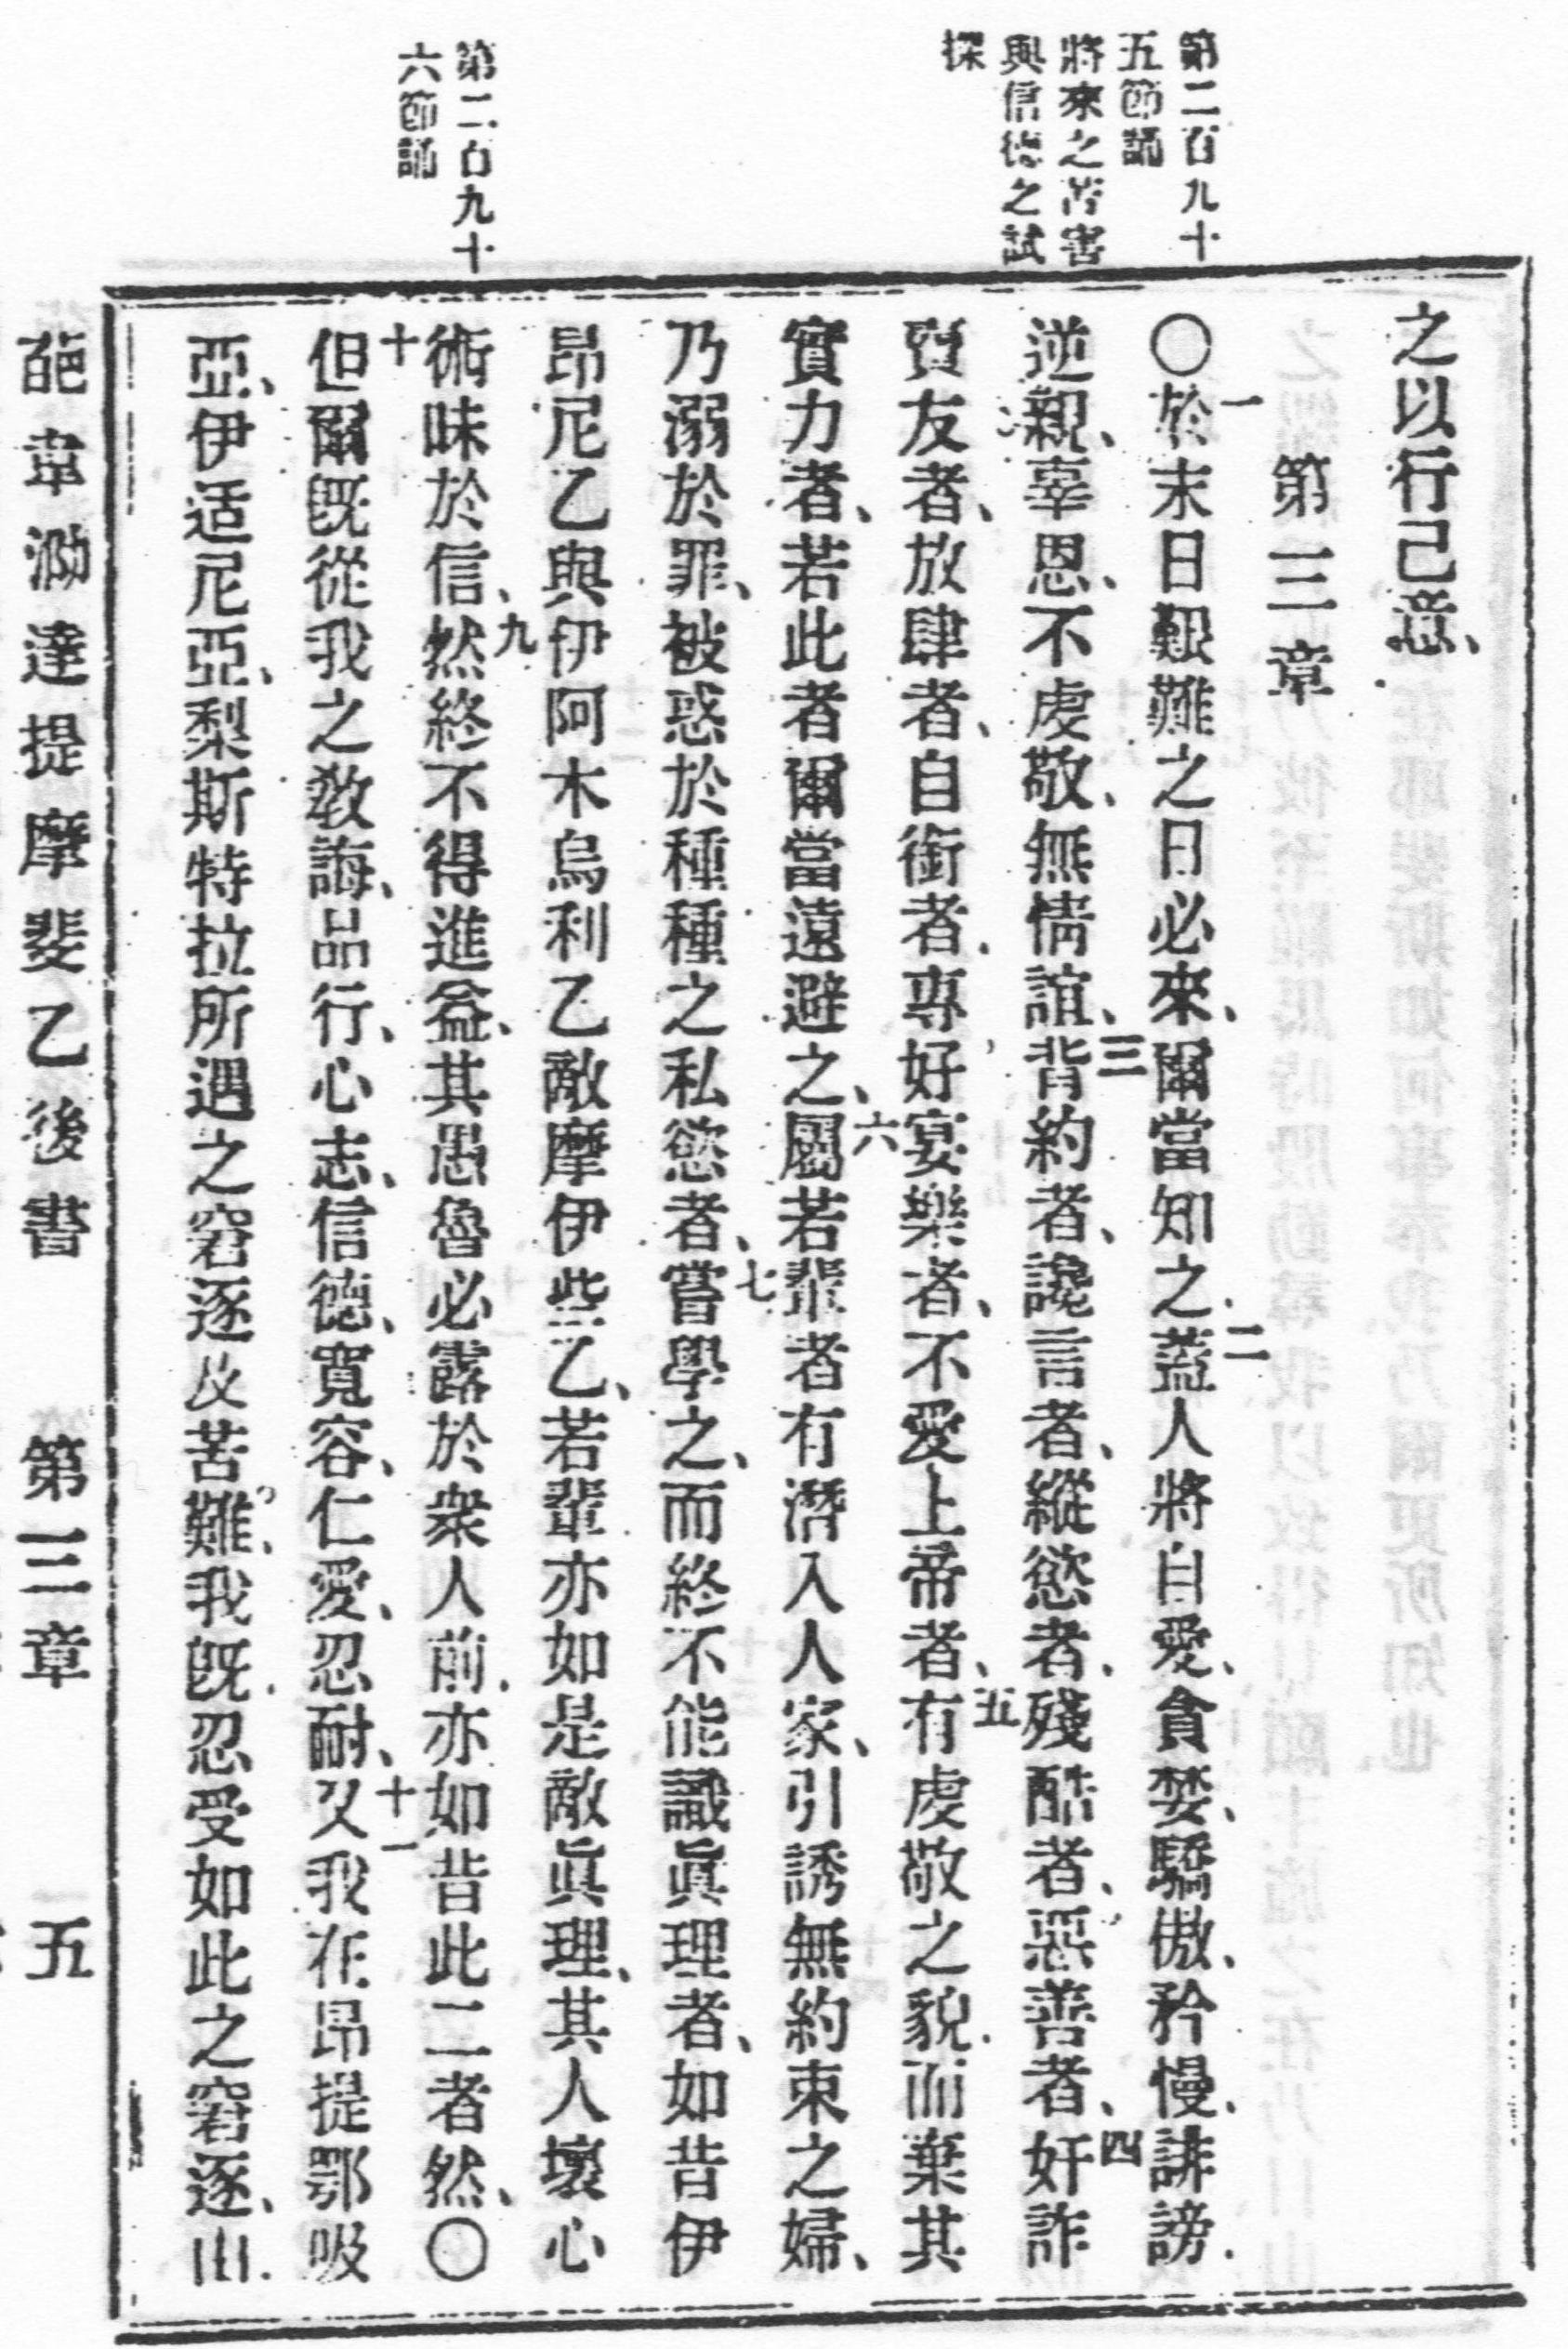 第二百九十
五節誦
將來之苦害
與信德之試
探
第二百九十
六節誦
之以行己意、
第三章
〇一於末日艱難之日必來、爾當知之、二蓋人將自愛、貪婪、驕傲、矜慢、誹謗、
逆親、辜恩、不虔敬、無情誼、三背約者、讒言者、縱慾者、殘酷者、惡善者、四奸詐
賣友者、放肆者、自衒者、專好宴樂者、不愛上帝者、五有虔敬之貌、而棄其
實力者、若此者爾當遠避之、六屬若輩者有潛入人家、引誘無約束之婦、
乃溺於罪、被惑於種種之私慾者、七嘗學之、而終不能識眞理者、如昔伊
昂尼乙與伊阿木烏利乙敵摩伊些乙、若輩亦如是敵眞理、其人壞心
術味於信、九然終不得進益、其愚魯必露於衆人前、亦如昔此二者然、〇
十但爾旣從我之敎誨、品行、心志、信德、寬容、仁愛、忍耐、十一又我在昂提鄂吸
亞、伊适尼亞、梨斯特拉所遇之窘逐及苦難、我旣忍受如此之窘逐、
葩韋泐達提摩斐乙後書 第三章 五